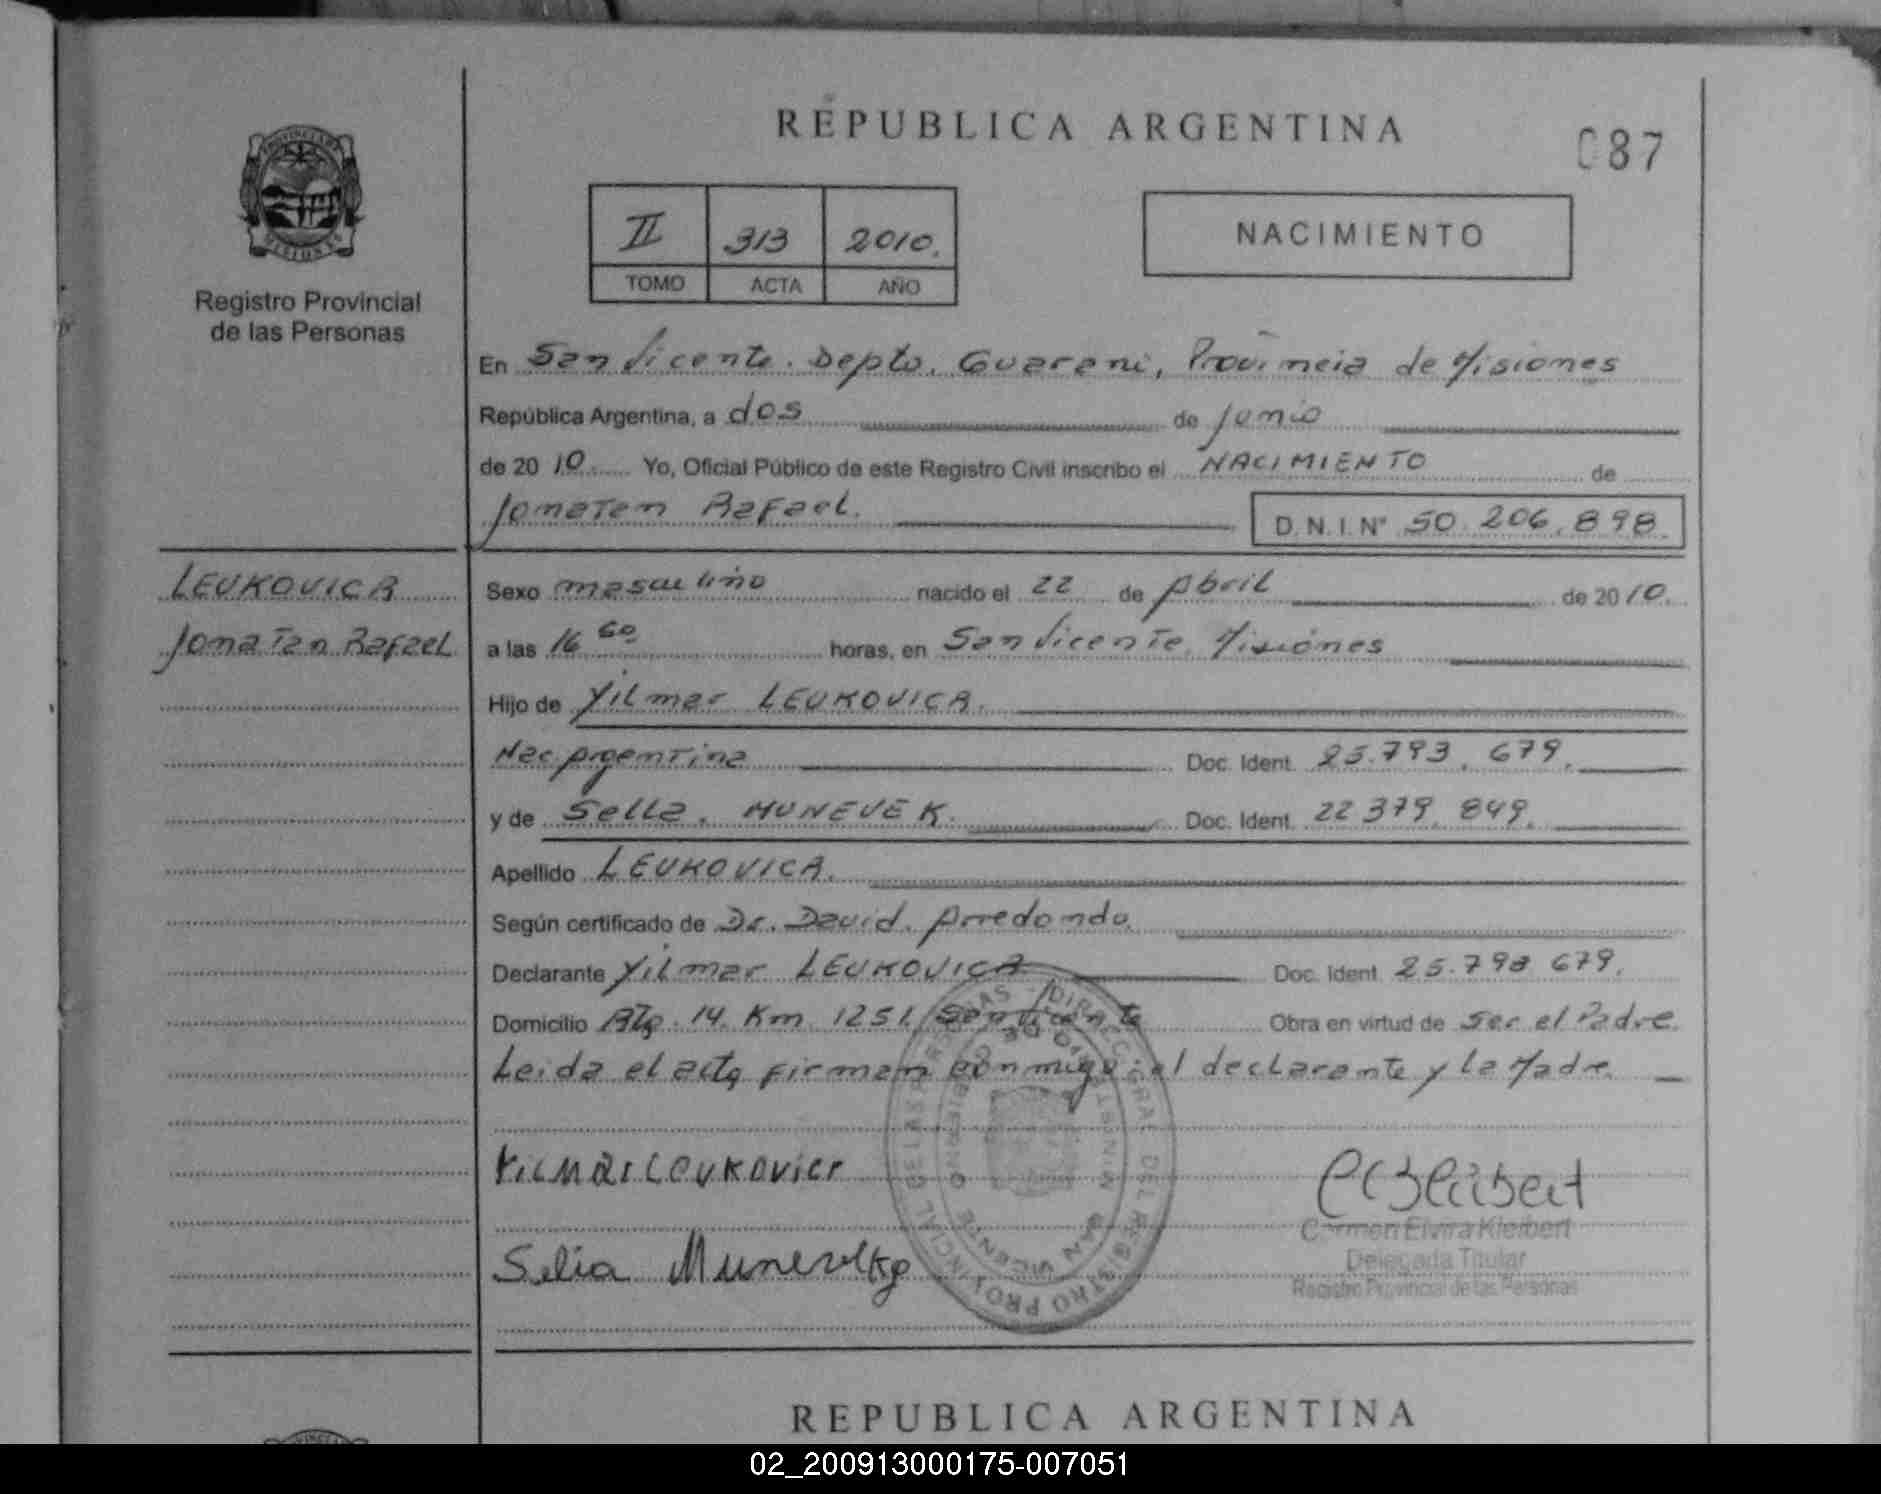 REPUBLICA ARGENTINA
087
II 313 2010.
TOMO ACTA AÑO
NACIMIENTO
Registro Provincial
de las Personas
En San Vicente. Depto. Guarani, Provincia de Misiones
República Argentina, a dos de Junio
de 2010 Yo, Oficial Público de este Registro Civil inscribo el NACIMIENTO de
Jonatan Rafael. D.N.I.Nº 50.206.898.
LEVKOVICR
Jonatan Rafael
Sexo masculino nacido el 22 de Abril de 2010.
a las 16 horas, en San Vicente Misiones
Hijo de Yilmar LEVKOVICR.
Nac Argentina Doc. Ident. 25.793.679.
y de Selia. MUNEVEK. Doc. Ident. 22 379.849.
Apellido LEVKOVICR.
Según certificado de Dr. David. Arredondo.
Declarante Yilmar LEVKOVICR Doc. Ident. 25.793 679.
Domicilio 14 Km 1251 San Vicente Obra en virtud de Ser el Padre.
Leida el acta firman conmigo el declarante y la Madre.
Selia
Carmen Elvira Kleibert
Delegada Titular
Registro Provincial de las Personas
REPUBLICA ARGENTINA
02_200913000175-007051